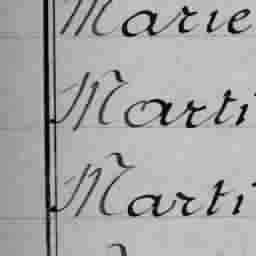 Marie
Marti
Marti